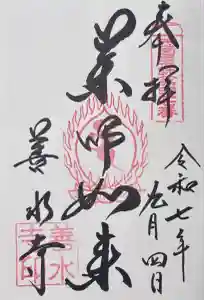 奉拝
令和七年
九月四日
薬師如来
善水寺
善水
寺印